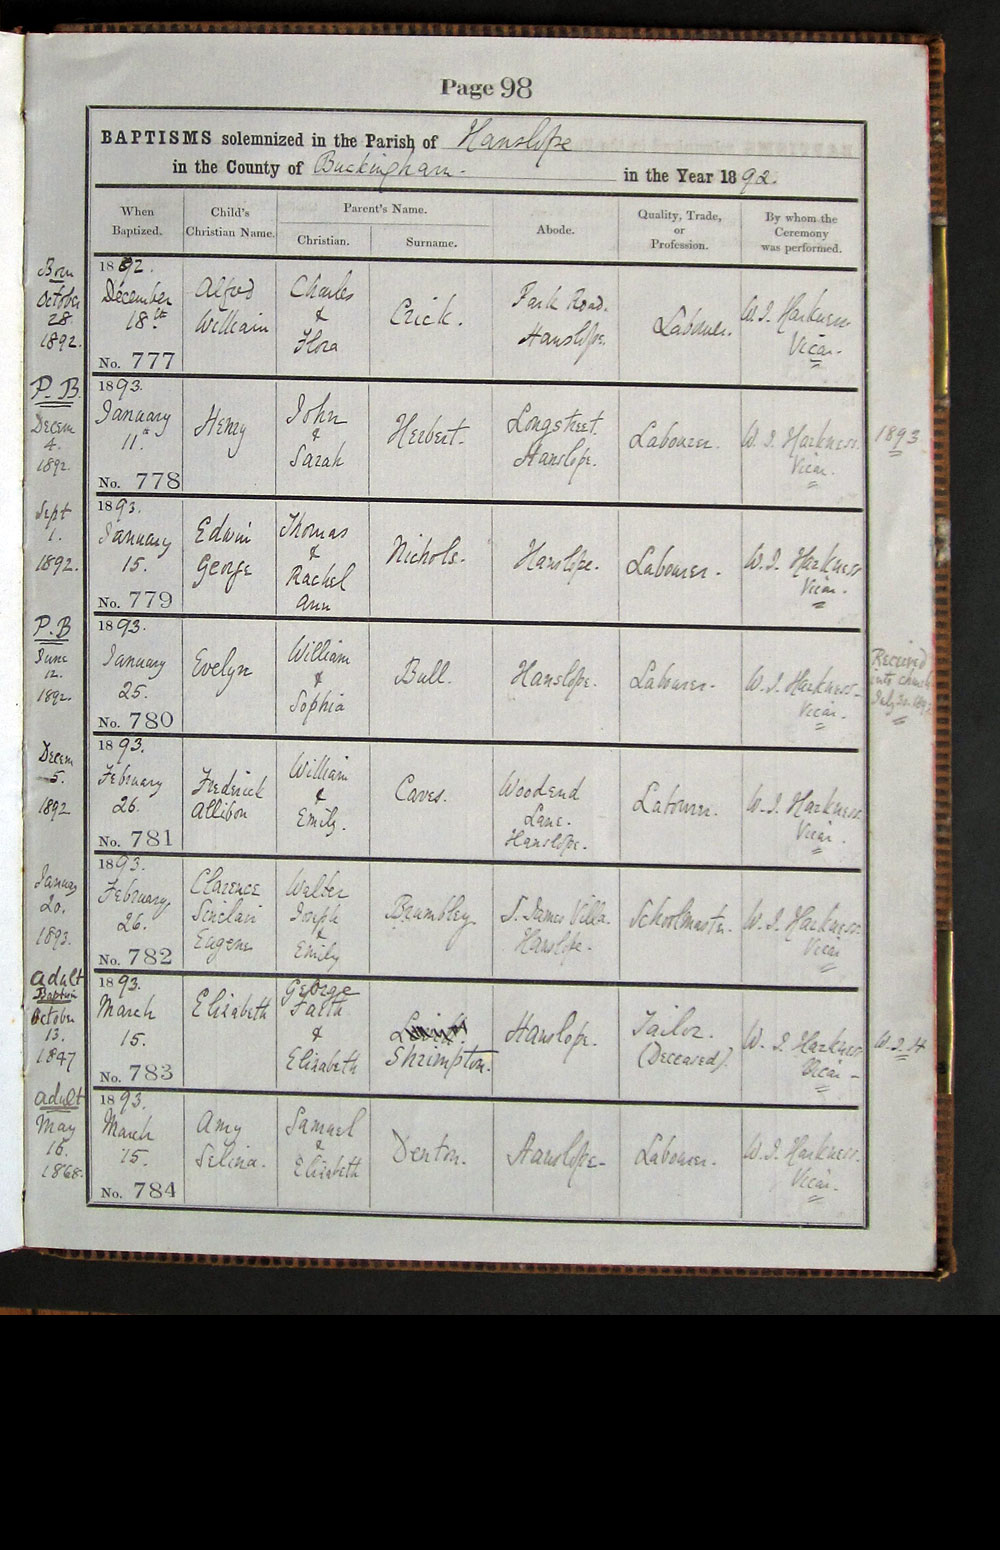 Page 98
BAPTISMS solemnized in the Parish of Hanslope
in the County of Buckingham. in the Year 1892.
When Baptized.
Child's Christian Name.
Parent's Name.
Christian.
Surname.
Abode.
Quality, Trade, or Profession.
By whom the Ceremony was performed.
Born
October
28.
1892.
1892.
December
18th
No. 777
Alfred
William
Charles
&
Flora
Crick.
Park Road.
Hanslope.
Labourer.
W. J. Harkness
Vicar.
P. B.
Decem
4.
1892.
1893.
January
11th
No. 778
Henry
John
&
Sarah
Herbert.
Longstreet.
Hanslope.
Labourer.
W. J. Harkness.
Vicar.
1893
Sept
1.
1892.
1893.
January
15.
No. 779
Edwin
George
Thomas
&
Rachel
Ann
Nichols.
Hanslope.
Labourer.
W. J. Harkness
Vicar.
P. B
June
12.
1892.
1893.
January
25.
No. 780
Evelyn
William
&
Sophia
Bull.
Hanslope.
Labourer.
W. J. Harkness
Vicar.
Received
into church
July 30.
Decem
5.
1892
1893.
February
26.
No. 781
Frederick
Allibon
William
&
Emily.
Caves.
Woodend
Lane.
Hanslope.
Labourer.
W. J. Harkness
Vicar.
January
20.
1893.
1893.
February
26.
No. 782
Clarence
Sinclair
Eugene
Walter
Joseph
&
Emily
Brumbley.
S. James Villa.
Hanslope.
Schoolmaster.
W. J. Harkness.
Vicar
Adult
Baptism
October
13.
1847
1893.
March
15.
No. 783
Elizabeth
George
Faith
&
Elizabeth
Shrimpton.
Hanslope.
Tailor.
(Deceased).
W. J. Harkness
Vicar
W. J. H
Adult
May
16.
1868.
1893.
March
15.
No. 784
Amy
Selina.
Samuel
&
Elizabeth
Denton.
Hanslope
Labourer.
W. J. Harkness.
Vicar.